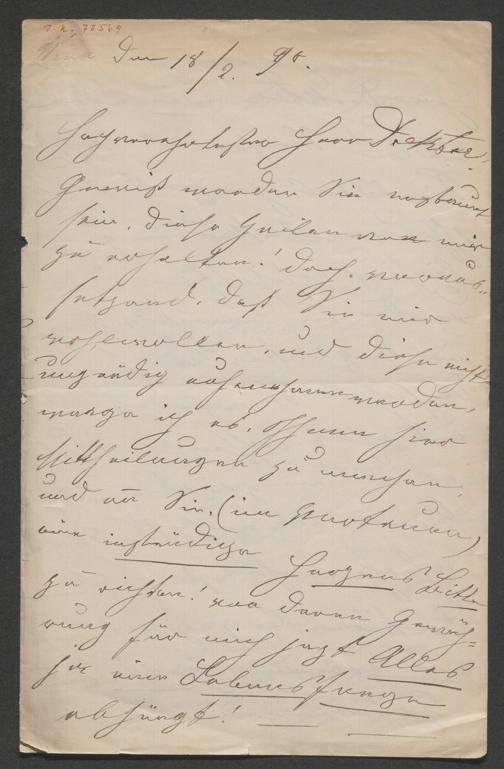 I.N. 78569
Wien den 18/2. 98.
Hochverehrtester Herr Doktor!
Gewiß werden Sie erstaunt
sein, diese Zeilen von mir
zu erhalten! Doch, voraus-
setzend, daß Sie mir
wohlwollen, und diese nicht
ungnädig aufnehmen werden,
wage ich es, Ihnen hier
Mittheilungen zu machen,
und an Sie, (im Vertrauen)
eine inständige Herzens Bitte
zu richten! von deren Gewäh-
rung für mich jetzt Alles
ja eine Lebensfrage
abhängt!